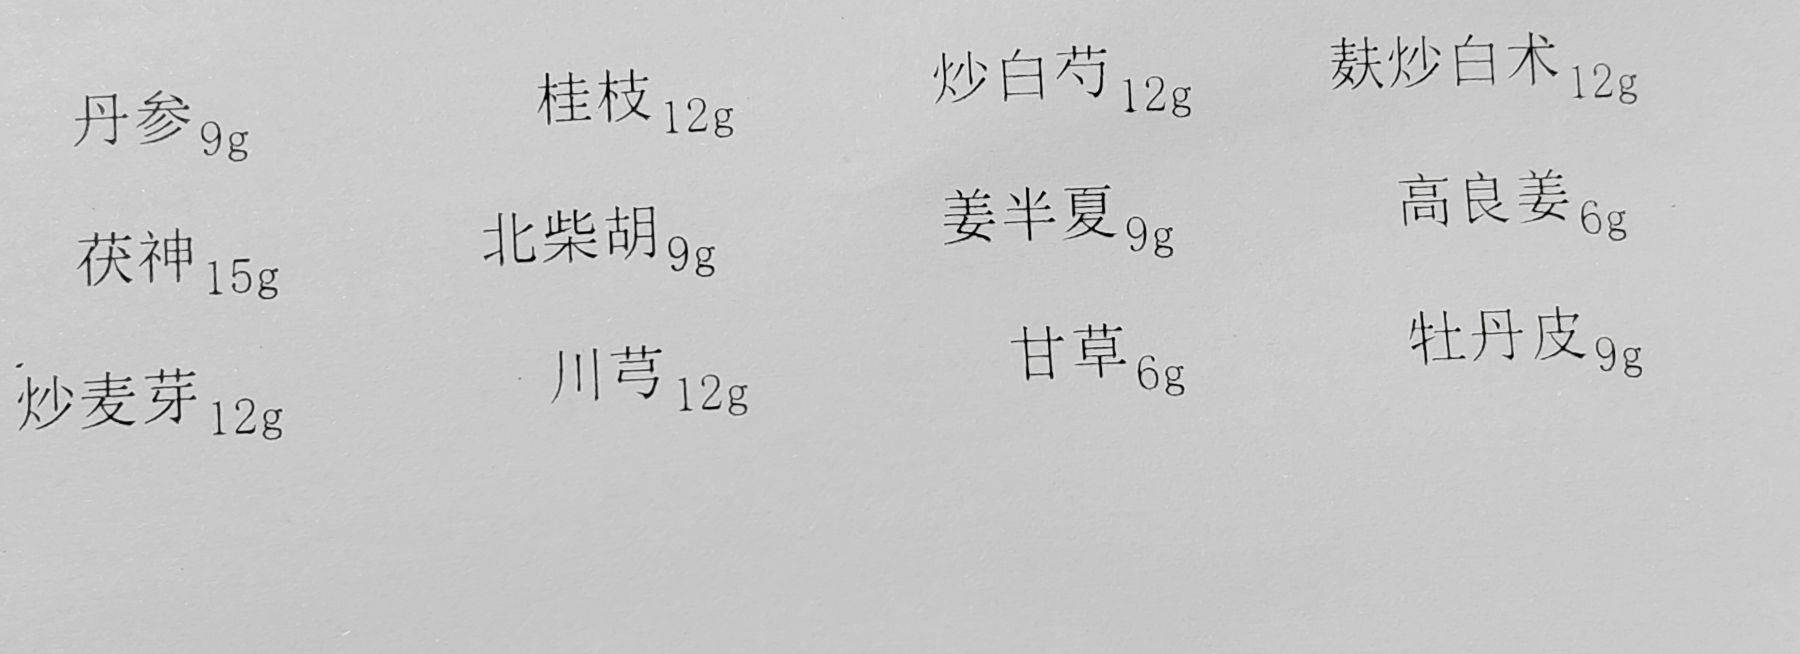 丹参9g 桂枝12g 炒白芍12g 麸炒白术12g
茯神15g 北柴胡9g 姜半夏9g 高良姜6g
炒麦芽12g 川芎12g 甘草6g 牡丹皮9g